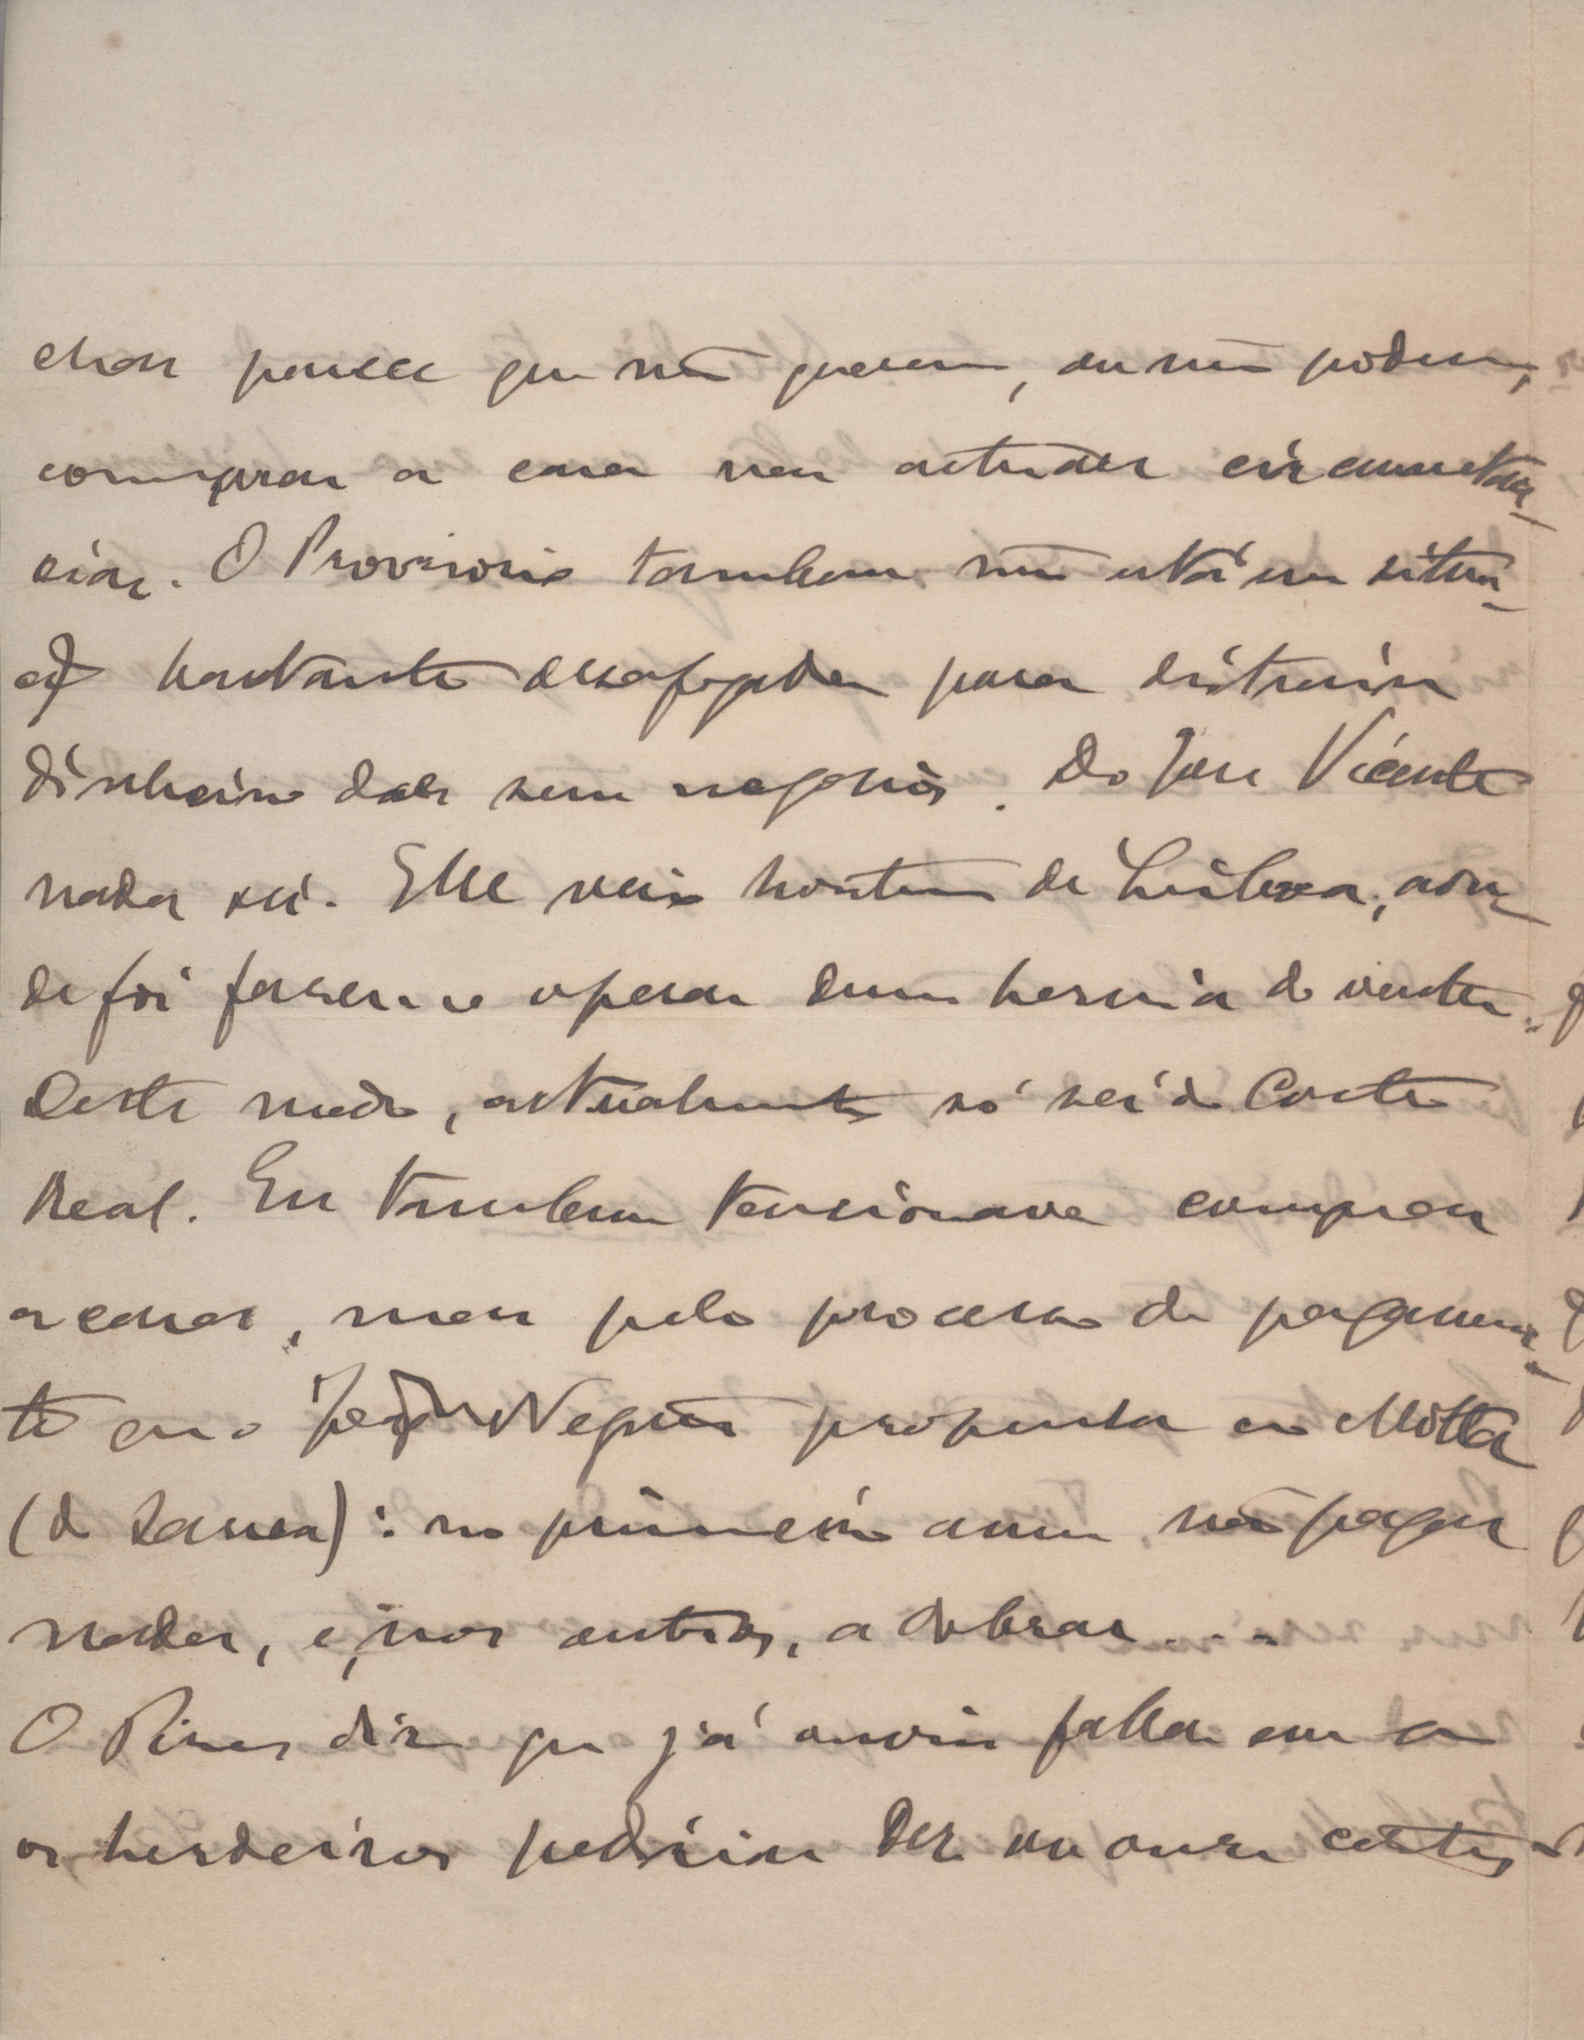 chon parece que não querem, ou não podem,
comprar a casa nas actuaes circumstan-
cias. O Provisorio tambem não está em situa-
ção bastante desafogada para distrair
dinheiro dos seus negocios. Do José Vicente
nada sei. Elle veio hontem de Lisboa, aon-
de foi fazer-se operar duma hernia do ventre.
Deste modo, actualmente só sei do Corte
Real. Eu tambem tencionava comprar
a casa, mas pelo processo de pagamen-
to que o João Negrão propunha ao Motta
(de Lavra): no primeiro anno não pagar
nada, e, nos outros, a dobrar...
O Pires diz que já ouviu fallar em a
os herdeiros pediriam dez ou onze contos